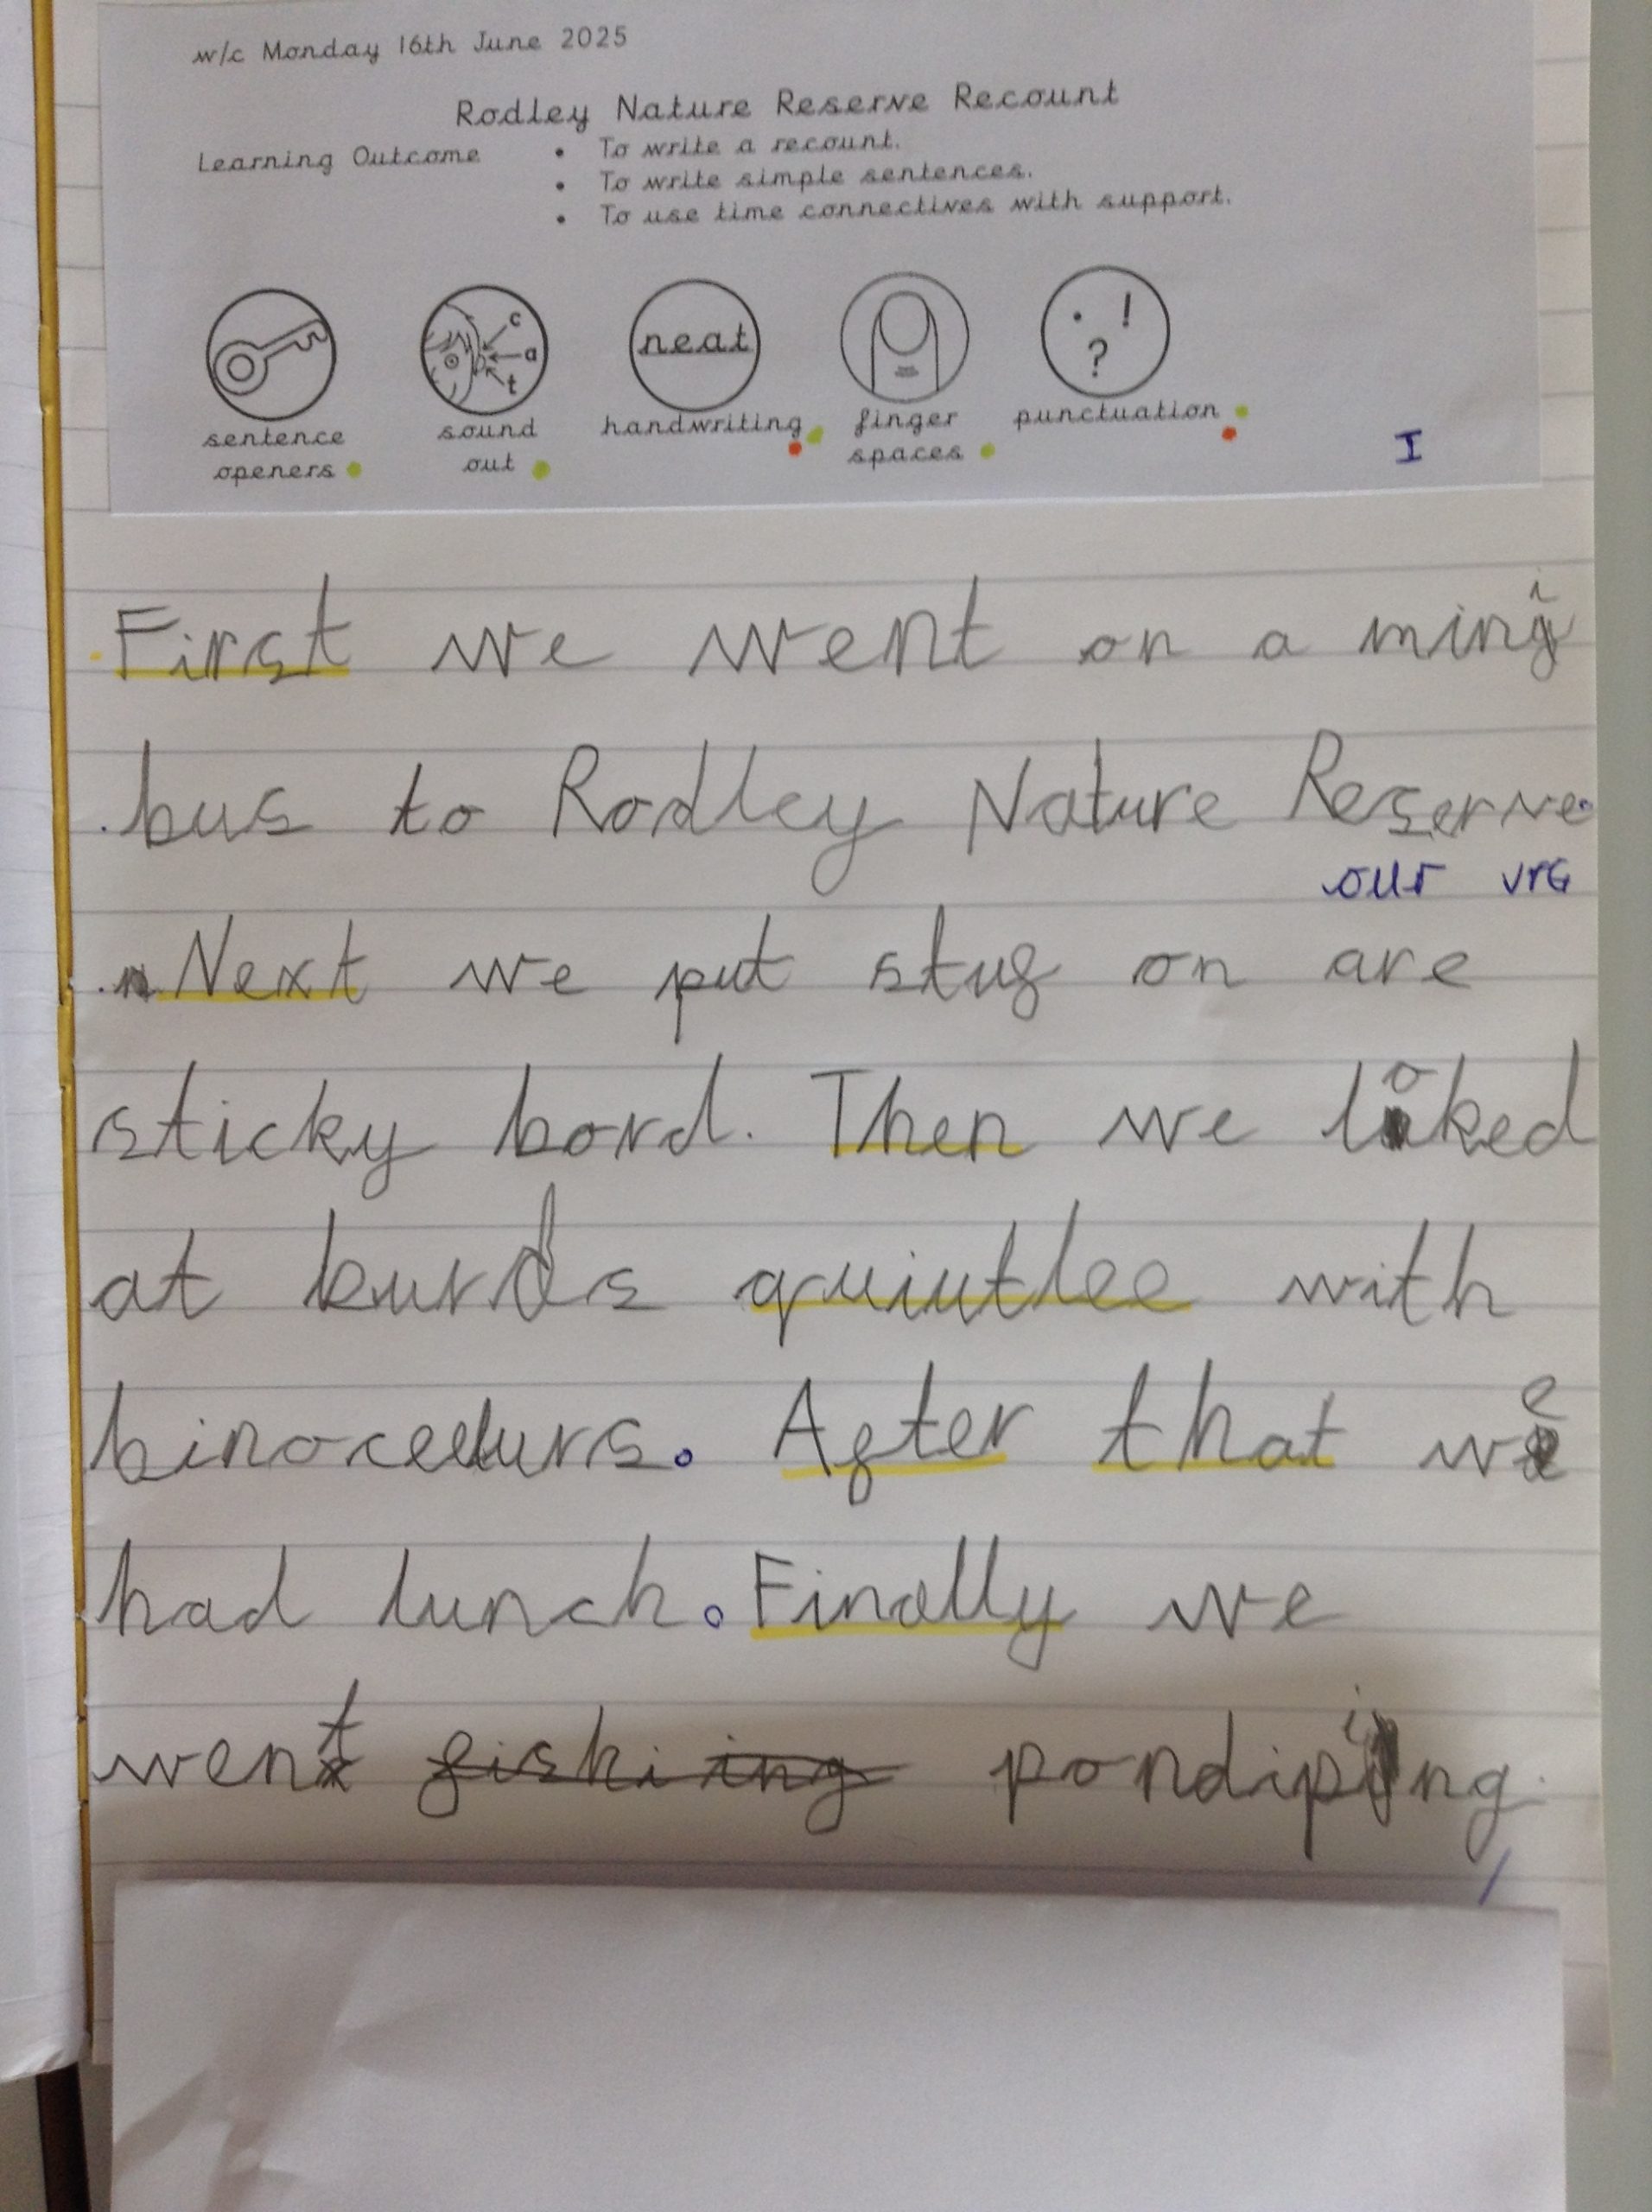 w/c Monday 16th June 2025
Rodley Nature Reserve Recount
Learning Outcome • To write a recount.
• To write simple sentences.
• To use time connectives with support.
c
a
t
neat
. ! ?
sentence openers
sound out
handwriting
finger spaces
punctuation
I
First we went on a mini
bus to Rodley Nature Reserve.
our
Next we put stuf on are
sticky bord. Then we loked
at burds quiutlee with
binoceelurs. After that we
had lunch. Finally we
went fishi ing pondiping.